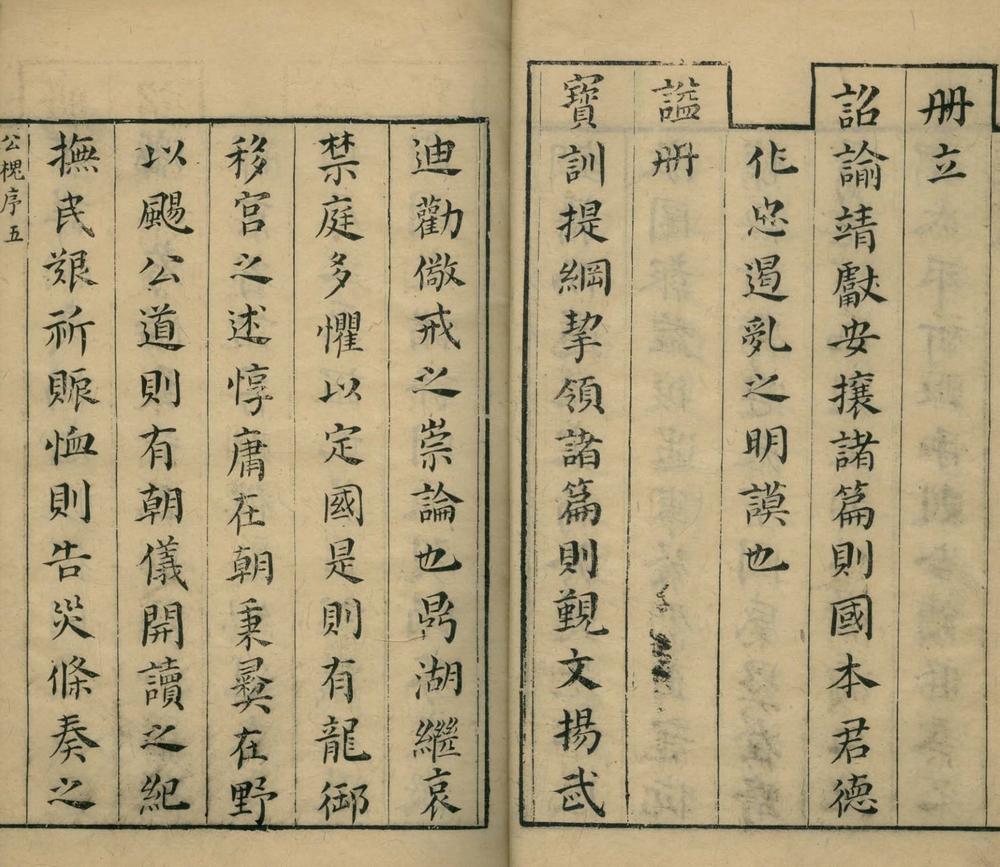 冊立
詔諭靖獻安攘諸篇則國本君德
化忠遏亂之明謨也
諡冊
寶訓提綱挈領諸篇則覲文揚武
迪勸儆戒之崇論也鼎湖繼哀
禁庭多懼以定國是則有龍御
移宮之述惇庸在朝秉彝在野
以颺公道則有朝儀開讀之紀
撫民艱祈賑恤則告災條奏之
公槐序 五